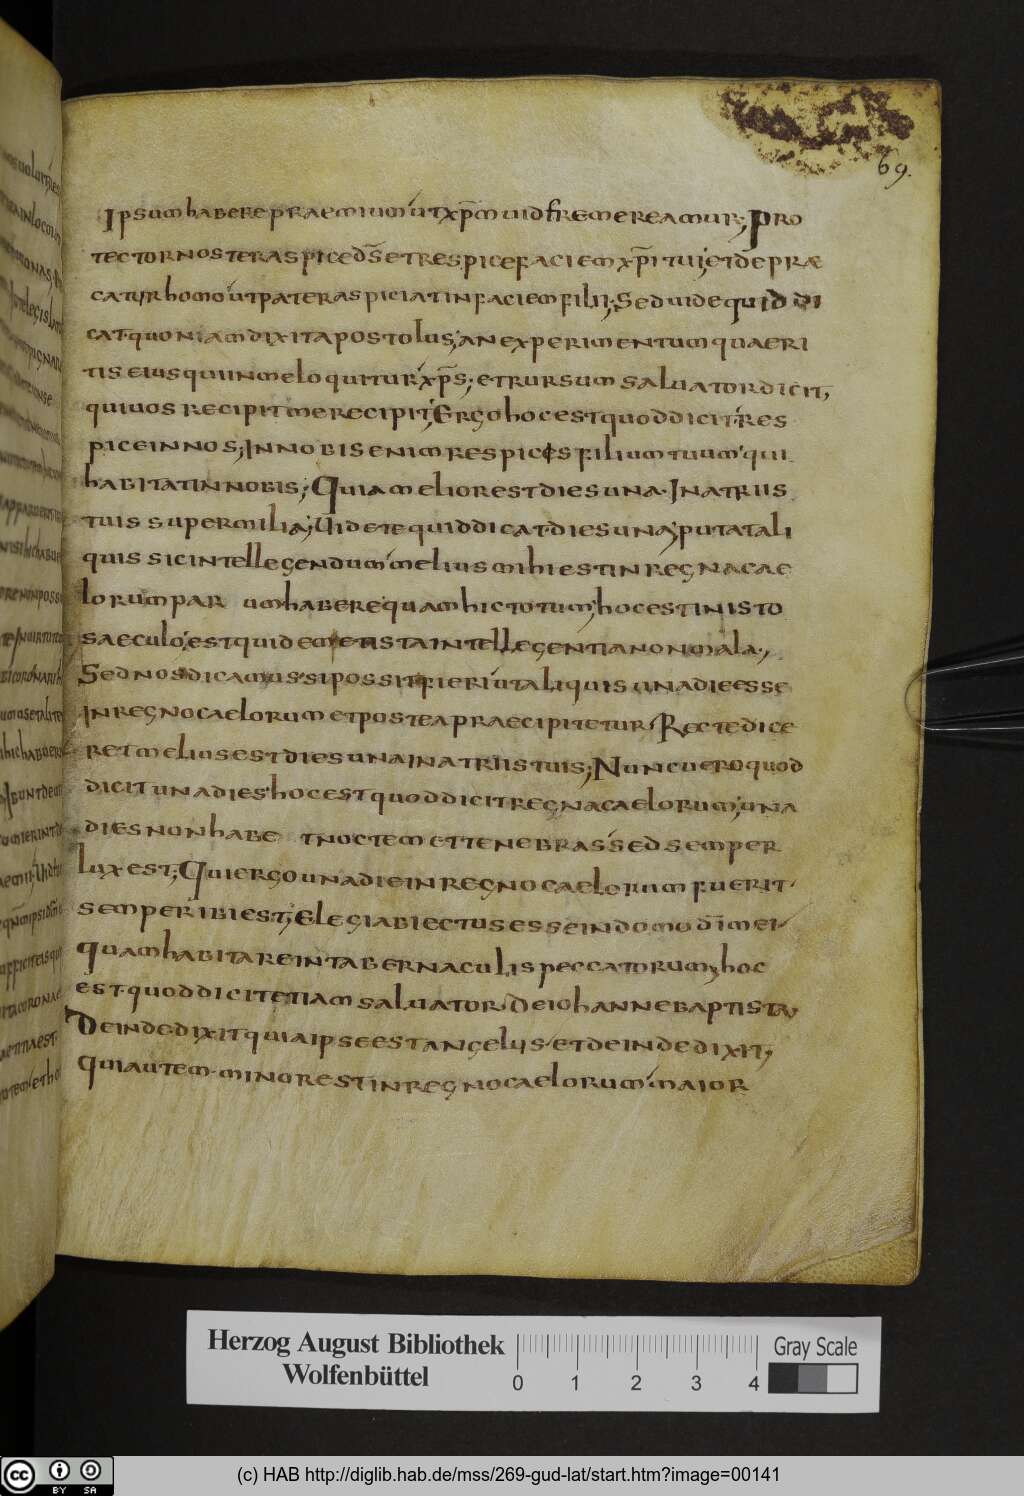 69.
Ipsum habere praemium ut xp̄m uidere mereamur; Pro
tector noster aspice d̄s et respice faciem xp̄i tui; et depræ
catur homo ut pater aspiciat in faciem filii; Sed uide quid di
cat quoniam dixit apostolus; an experimentum quaeri
tis eius qui in me loquitur xp̄s; et rursum saluator dicit,
qui uos recipit me recipit; Ergo hoc est quod dicit res
pice in nos; In nobis enim respicis filium tuum qui
habitat in nobis; Quia melior est dies una. In atriis
tuis super milia; Uidete quid dicat. dies una; putat ali
quis sic intellegendum melius mihi est in regna cae
lorum par um habere quam hic totum; hoc est in isto
saeculo; est quidem et ista intellegentia non mala.,
Sed nos dicamus si possit fieri ut aliquis una die esse
in regno caelorum et postea praecipitetur; Recte dice
ret melius est dies una in atriis tuis; Nunc uero quod
dicit una dies hoc est quod dicit regna caelorum; una
dies non habe t noctem et tenebras sed semper
lux est; Qui ergo una die in regno caelorum fuerit
semper ibi est; Elegi abiectus esse in domo d̄i mei
quam habitare in tabernaculis peccatorum; hoc
est. quod dicit etiam saluator. De iohanne baptista,
Deinde dixit quia ipse est angelus. et deinde dixit,
qui autem minor est in regno caelorum maior
Herzog August Bibliothek
Wolfenbüttel
0 1 2 3 4
Gray Scale
(c) HAB http://diglib.hab.de/mss/269-gud-lat/start.htm?image=00141
cc BY SA